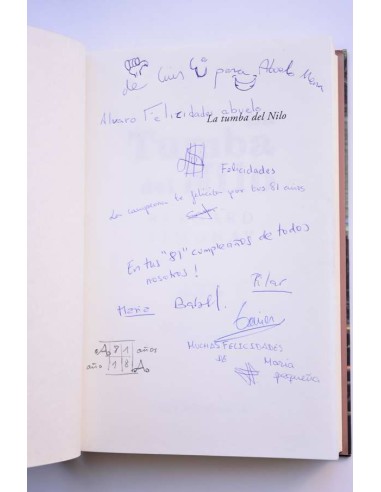 de Luis para Abuelo
Alvaro Felicidades abuelo
La tumba del Nilo
Felicidades
La campeona te felicita por tus 81 años
En tus "81" cumpleaños de todos
nosotros!
Pilar
María
Javier
MUCHAS FELICIDADES
de María
pequeña
A 81 años
año 18 A